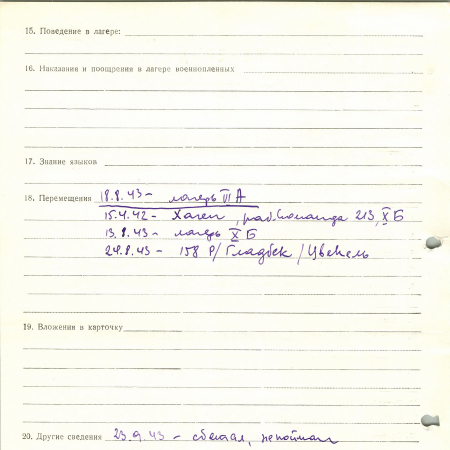 15. Поведение в лагере:
16. Наказания и поощрения в лагере военнопленных
17. Знание языков
18. Перемещения 18.8.43 – лагерь VI А
15.4.42 – Хаген, раб. команда 213, X Б
13.8.43 – лагерь X Б
24.8.43 – 158 Р/Гладбек/Цвекель
19. Вложения в карточку
20. Другие сведения 23.9.43 – сбежал, непойман